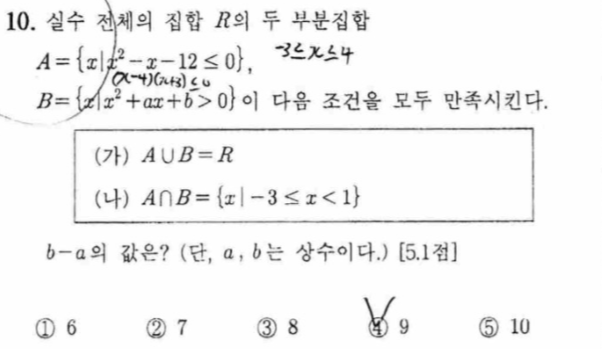 10. 실수 전체의 집합 R의 두 부분집합
A={x|x²-x-12≤0}, -3≤x≤4
(x-4)(x+3)≤0
B={x|x²+ax+b>0}이 다음 조건을 모두 만족시킨다.
(가) A∪B=R
(나) A∩B={x|-3≤x<1}
b-a의 값은? (단, a, b는 상수이다.) [5.1점]
① 6 ② 7 ③ 8 ④ 9 ⑤ 10